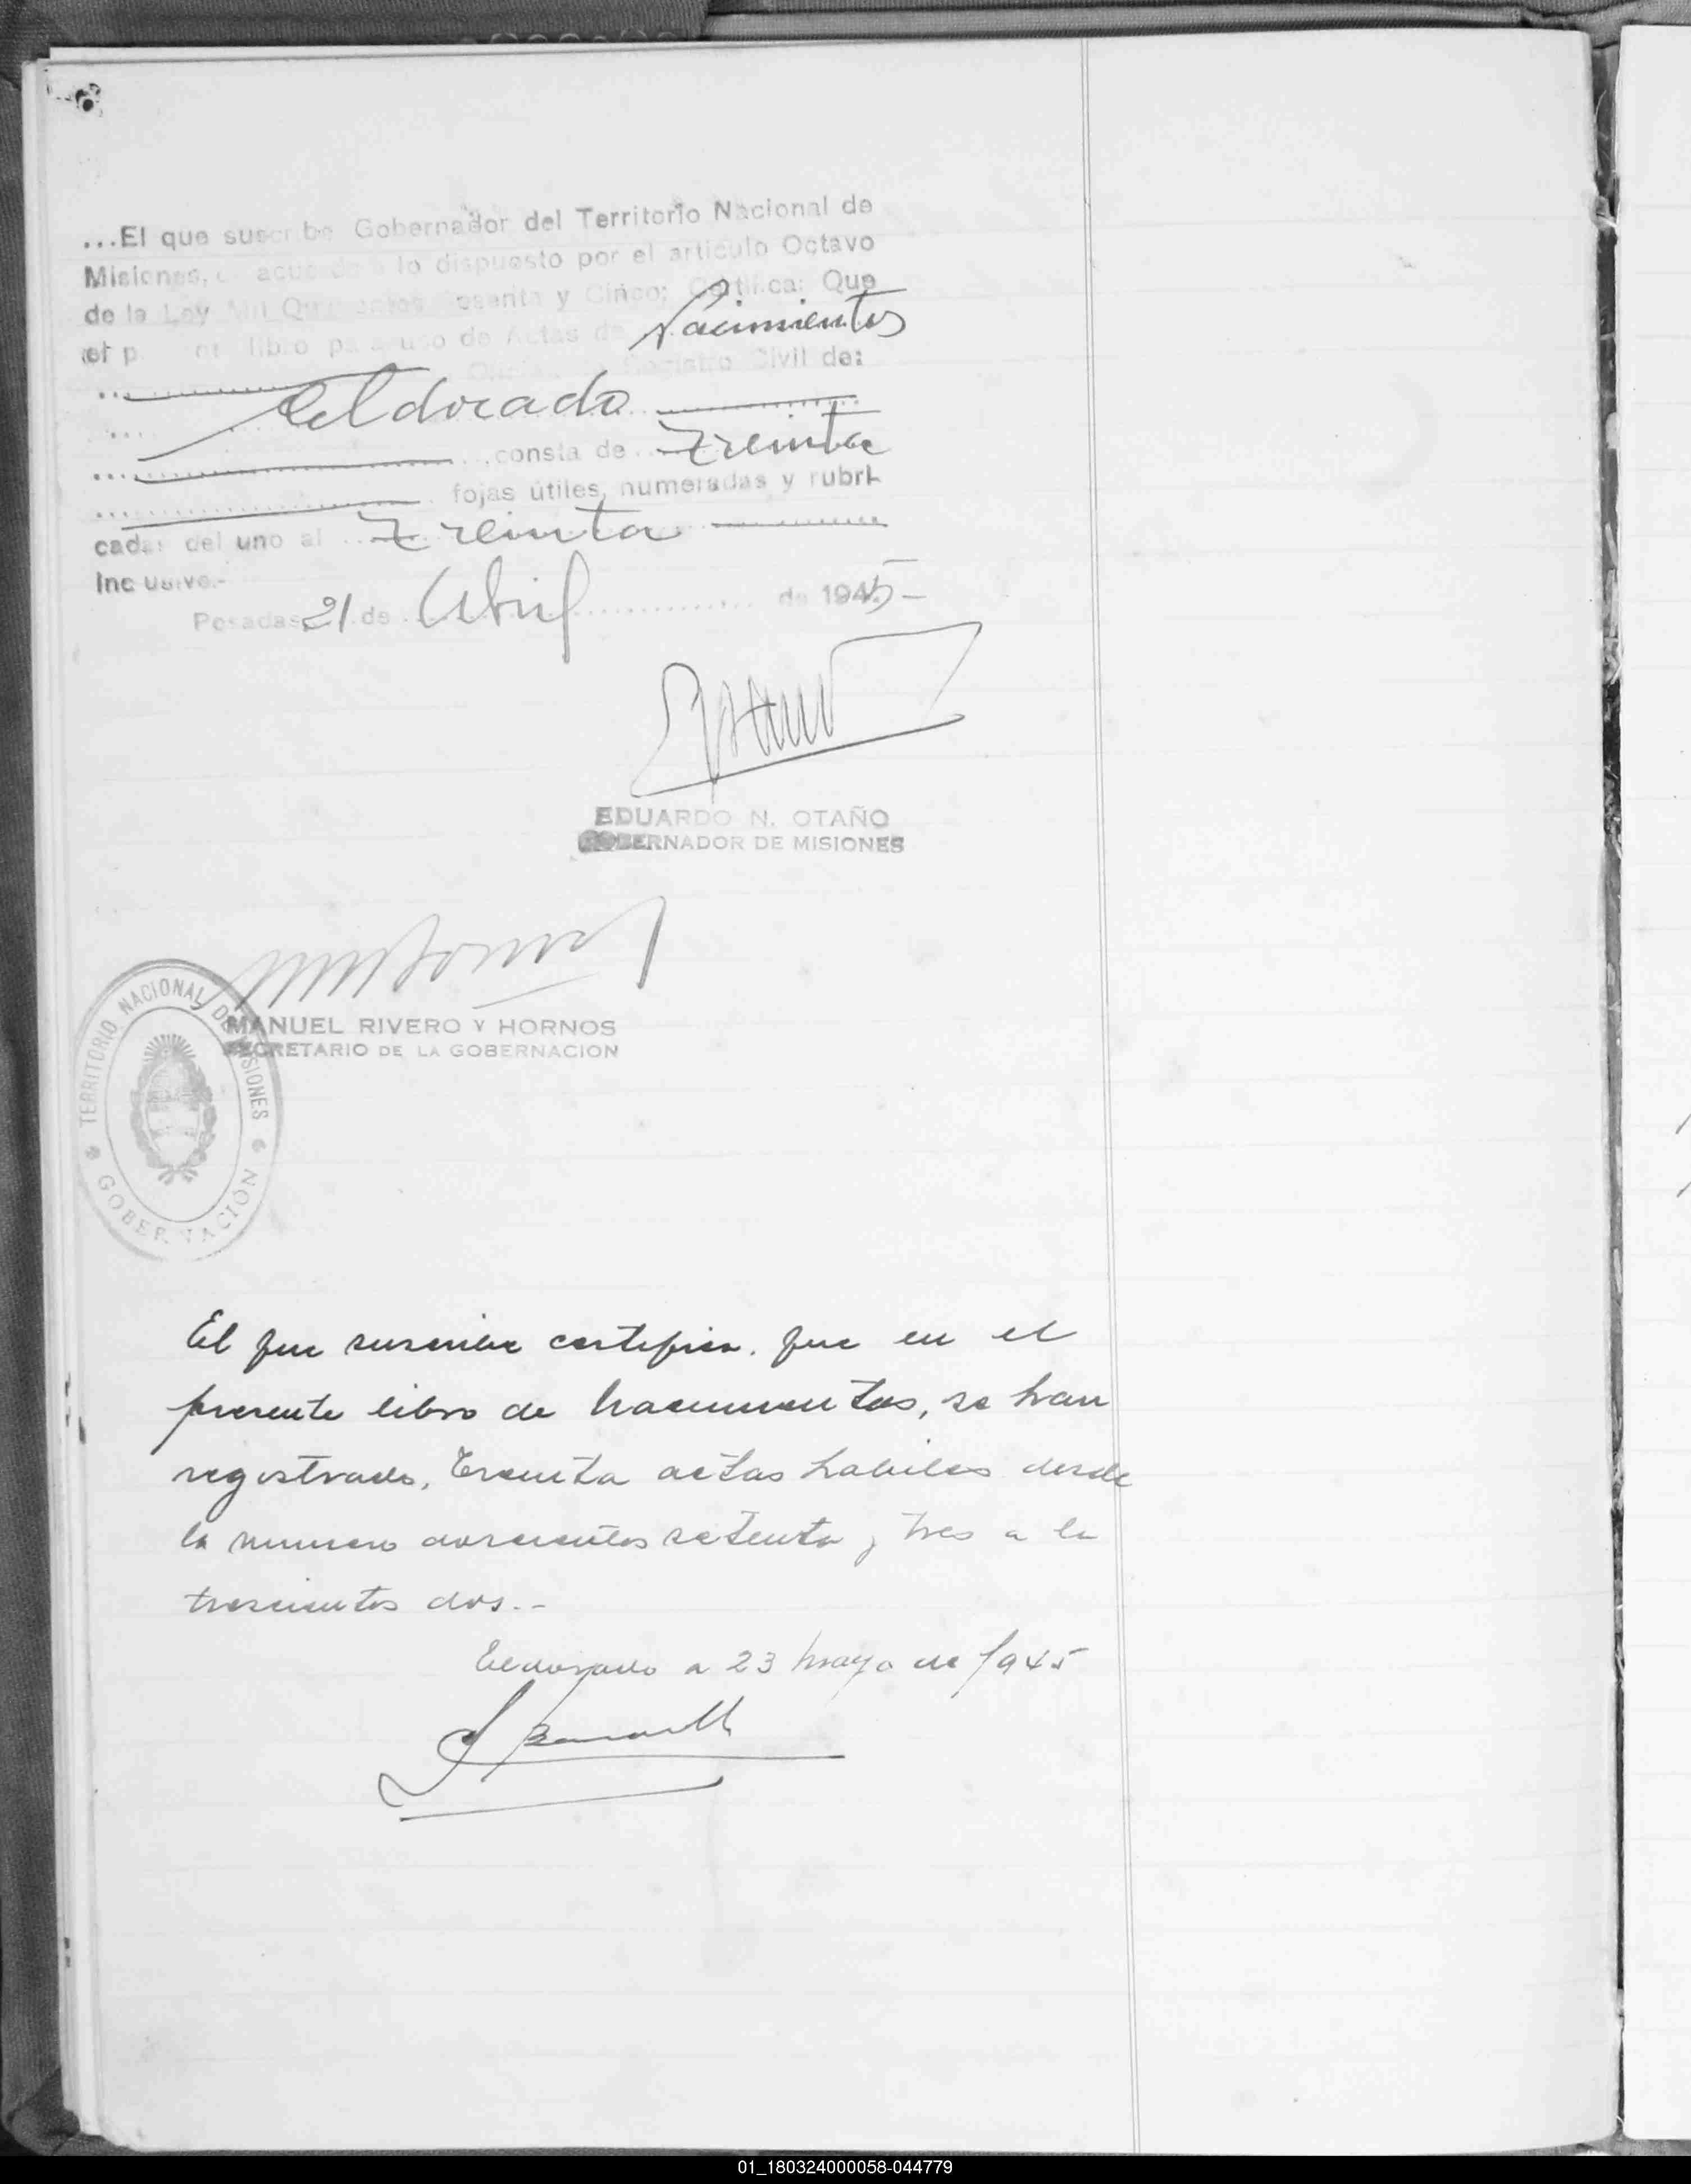 ...El que suscribe Gobernador del Territorio Nacional de
Misiones, de acuerdo a lo dispuesto por el artículo Octavo
de la Ley Mil Quinientos Sesenta y Cinco; Certifica: Que
el presente libro para uso de Actas de Nacimientos
Oficina de Registro Civil de:
Eldorado
consta de Treinta
fojas útiles, numeradas y rubri-
cadas del uno al Treinta
inclusive.-
Posadas, 21 de Abril de 1945-
EDUARDO N. OTAÑO
GOBERNADOR DE MISIONES
MANUEL RIVERO Y HORNOS
SECRETARIO DE LA GOBERNACION
TERRITORIO NACIONAL DE MISIONES
GOBERNACIÓN
El que suscribe certifica. que en el
presente libro de Nacimientos, se han
registrado, Treinta actas habiles desde
la numero doscientos setenta y tres a la
trescientos dos.-
Eldorado a 23 mayo de 1945
01_180324000058-044779